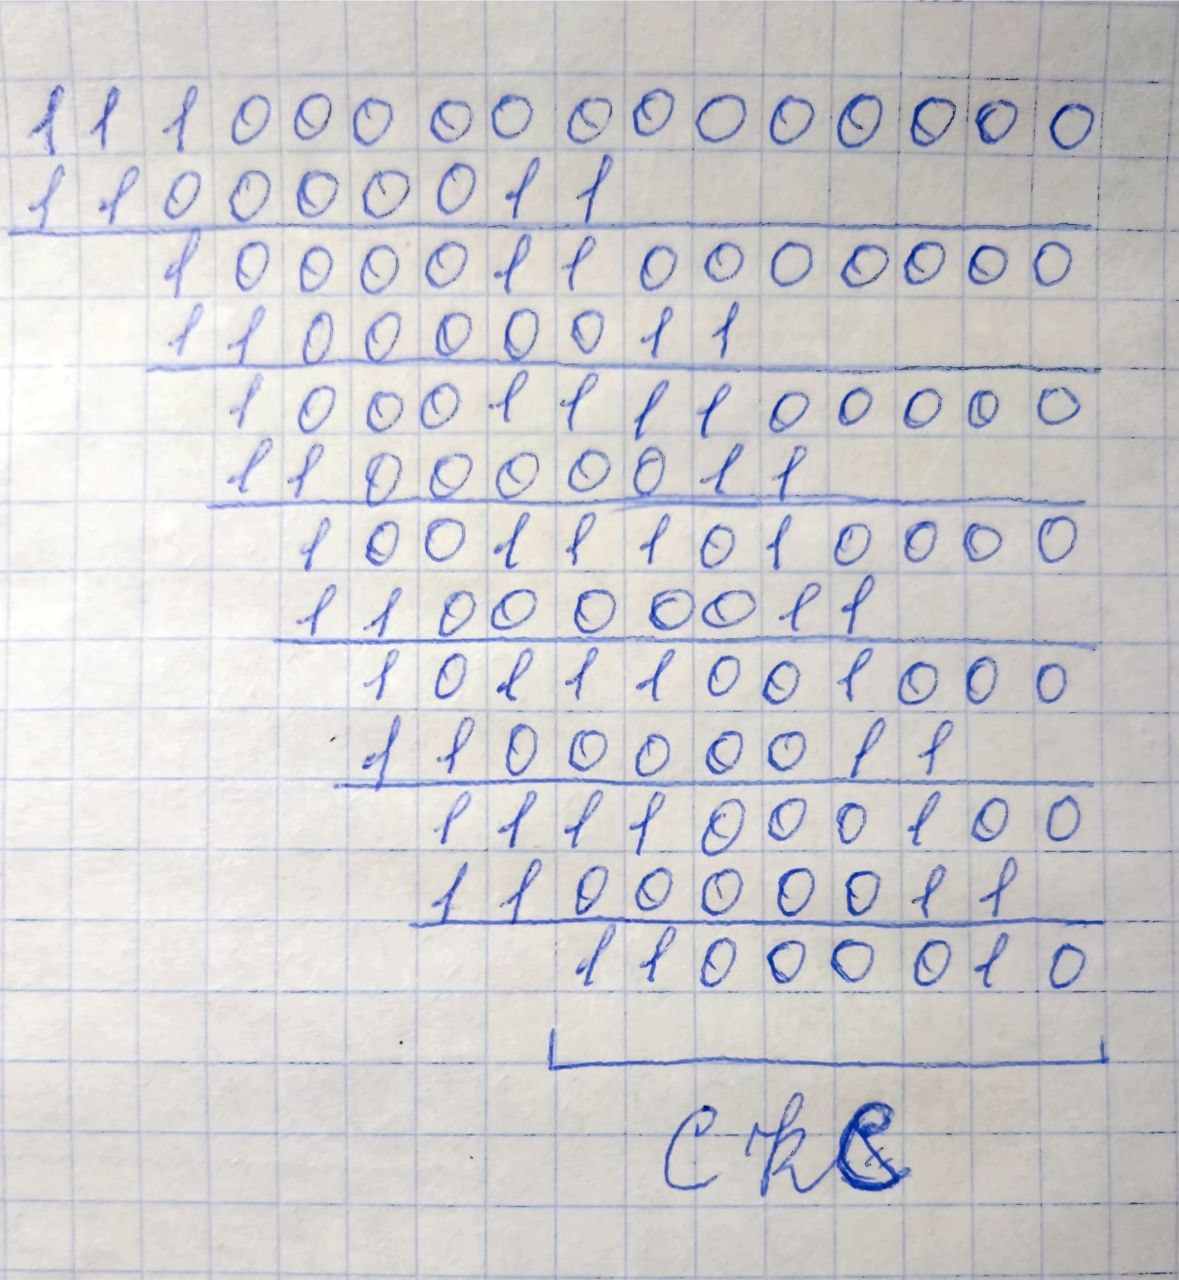 1110000000000000
110000011
10000110000000
110000011
1000111100000
110000011
100111010000
110000011
10111001000
110000011
1111000100
110000011
11000010
CRC